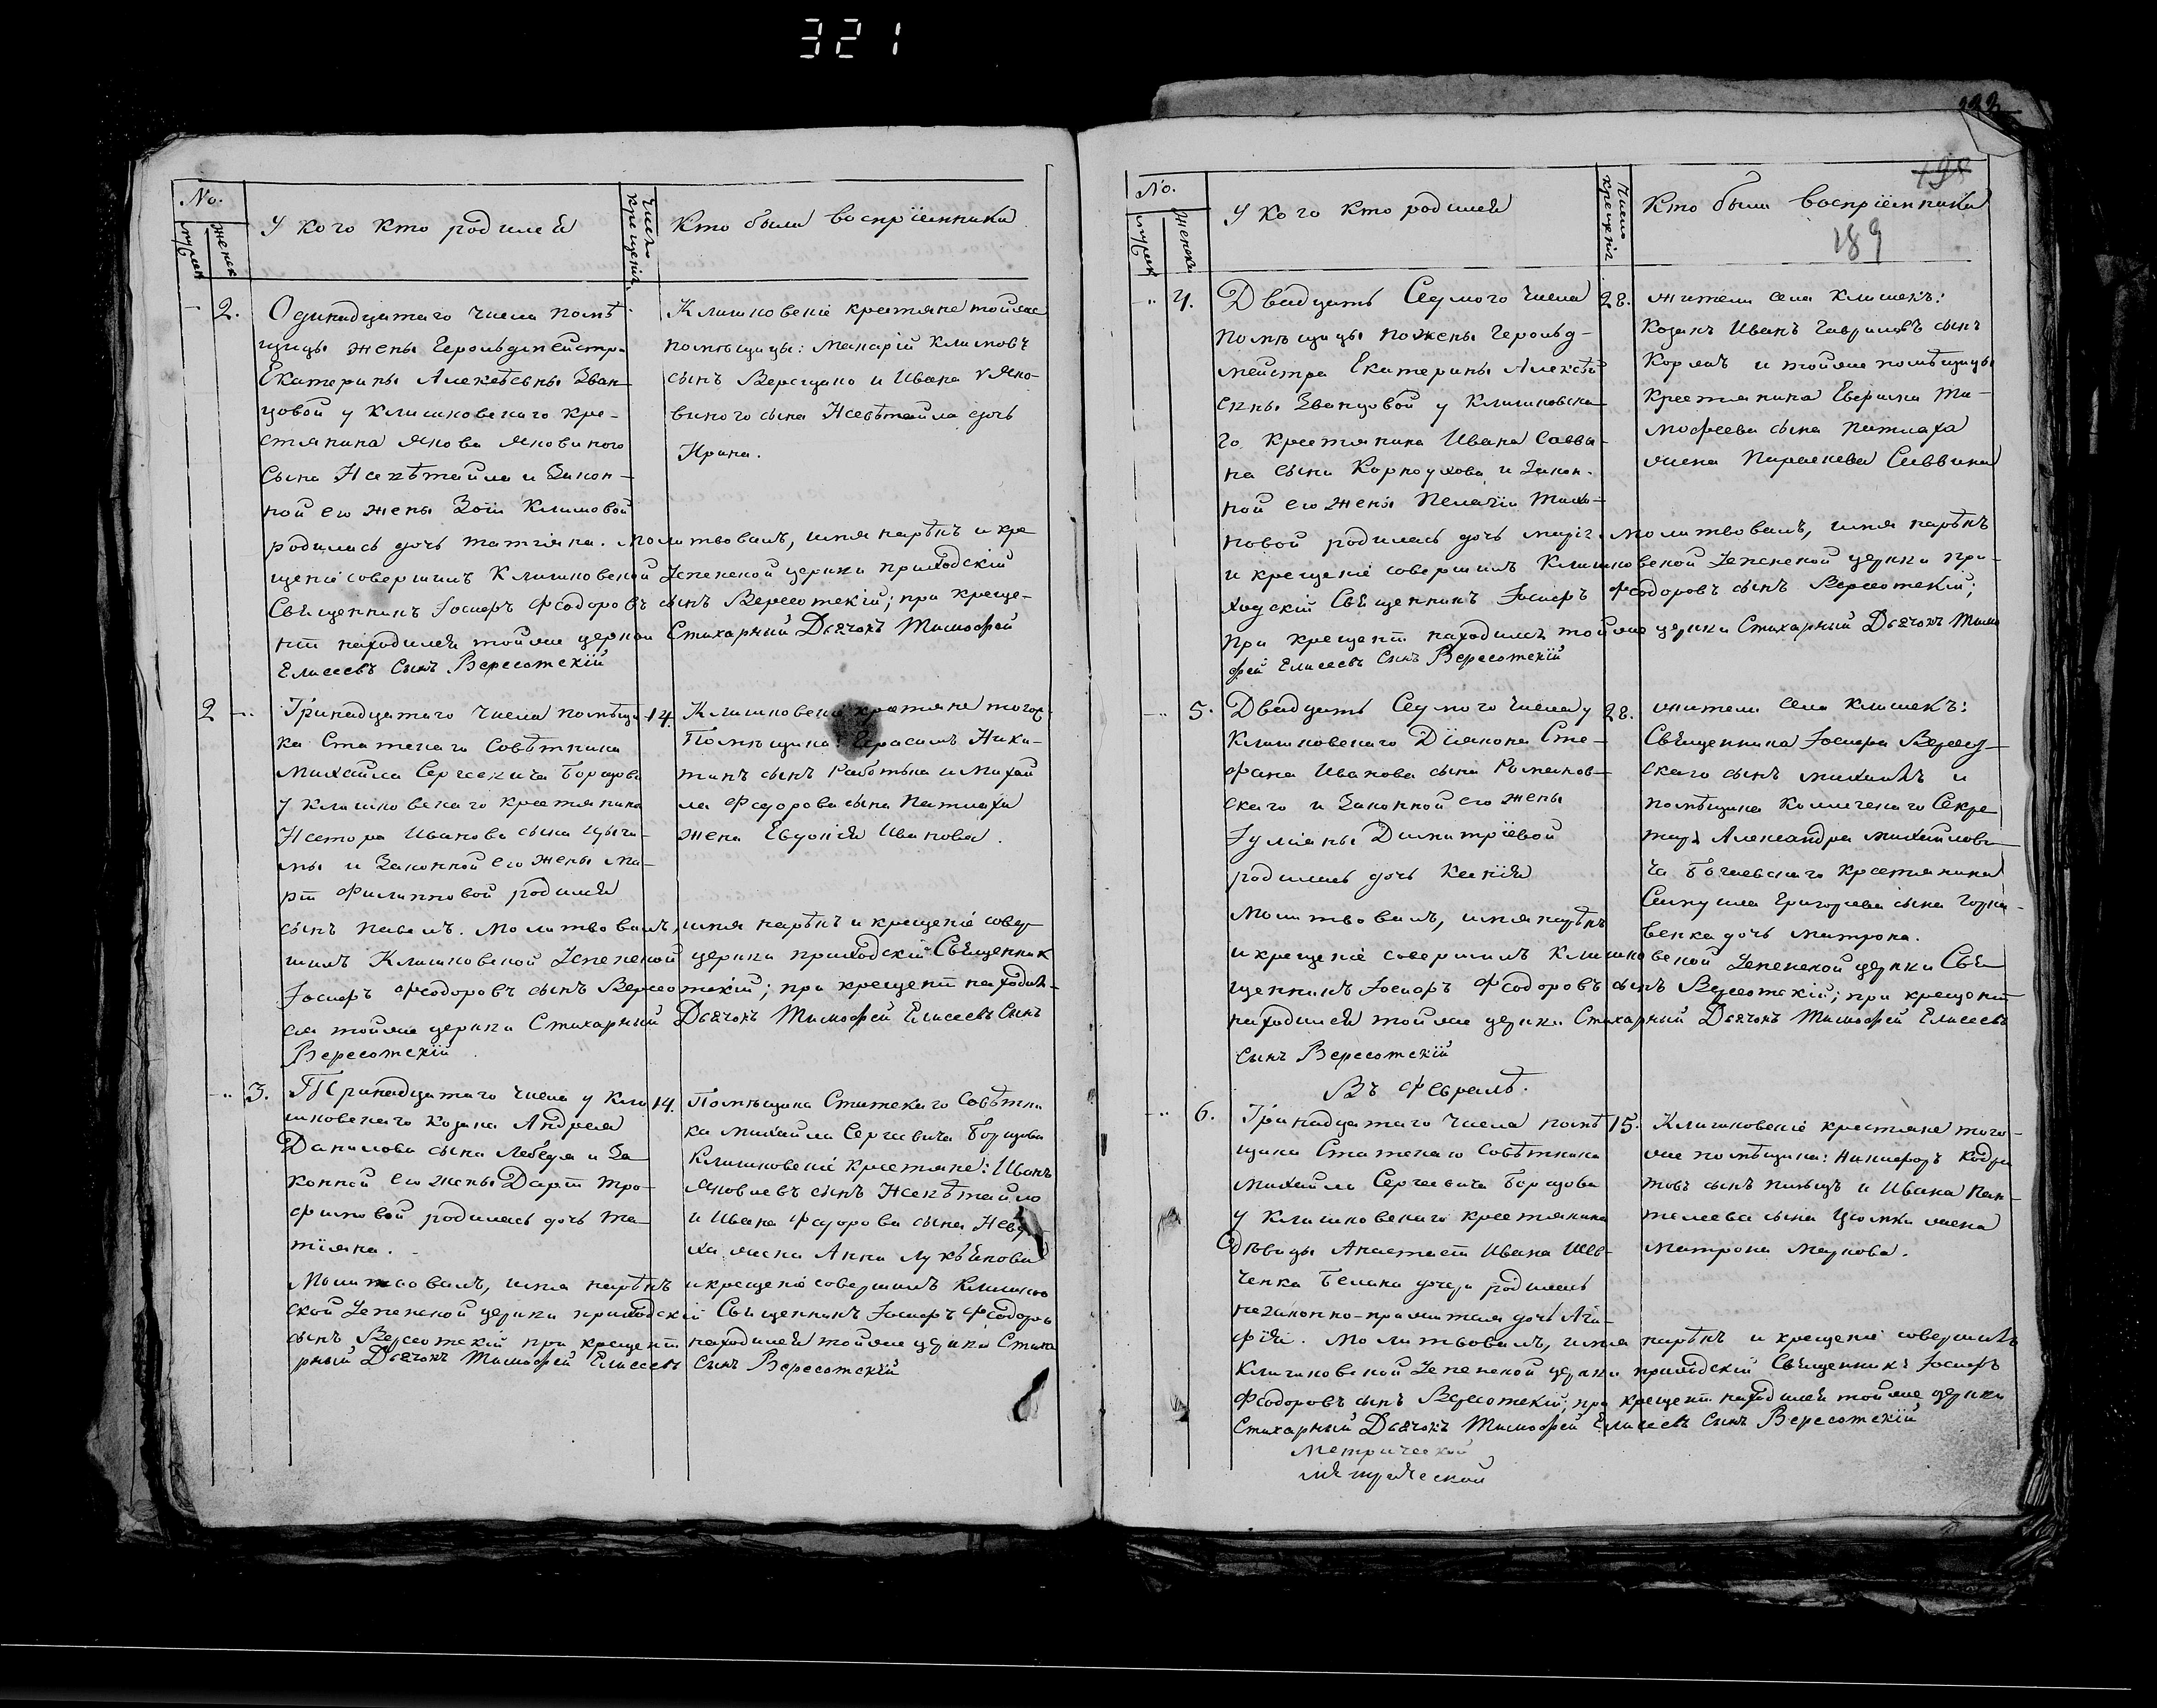 321
No.
мужск
женск
У кого кто родился
Число крещенія
Кто были воспріемники
2.
Одинадцатаго числа помѣ
щицы жены Герольдмейстра
Екатерины Алексѣевны Зван
цовой у Клишковскаго кре-
стянина Якова Яковиного
сына Непѣтайла и закон-
ной его жены Зоіи Климовой
родилась дочь татіяна. Молитвовалъ, имя нарѣкъ и кре
щеніе совершилъ Клишковской Успенской церкви приходскій
Священникъ Іосифъ Феодоровъ сынъ Вересотскій; при креще-
ніи находился тойже церкви Стихарный Дьячокъ Тимофей
Елисеевъ Сынъ Вересотскій
Клишковскіе крестяне тойже
помѣщицы: Макарій Климовъ
сынъ и Ивана Яко-
виного сына Непѣтайла дочь
Ирина.
2
Тринадцатаго числа помѣщи
ка Статскаго Совѣтника
Михайла Сергѣевича Борщова
у Клишковскаго крестянина
Нестора Иванова сына Цыга-
ны и Законной его жены Ма-
рѣи Филипповой родился
сынъ Павелъ. Молитвовалъ, имя нарѣкъ и крещеніе совер
шилъ Клишковской Успенской церкви приходскій Священник
Іосифъ Феодоровъ сынъ Вересотскій; при крещеніи находил-
ся тойже церкви Стихарный Дьячокъ Тимофей Елисеевъ Сынъ
Вересотскій
14.
Клишковскіе крестяне тогож
Помѣщика: Герасимъ Ники-
тинъ сынъ Работька и Михай
ла Федорова сына Патлаха
жена Евдокія Иванова.
3.
Тринадцатаго числа у Кли
шковскаго козака Андрея
Данилова сына Лебедя и За
конной его жены Дарѣи Тро-
фимовой родилась дочь та-
тіяна.
Молитвовалъ, имя нарѣкъ и крещеніе совершилъ Клишков
ской Успенской церкви приходскій Священникъ Іосифъ Феодоровъ
сынъ Вересотскій при крещеніи находился тойже церкви Стиха
рный Дьячокъ Тимофей Елисеевъ Сынъ Вересотскій
14.
Помѣщика Статскаго Совѣтни
ка Михайла Сергѣевича Борщова
Клишковскіе крестяне: Иванъ
Яковлевъ сынъ Непѣтайло
и Ивана Федорова сына
жена Анна Лукьянова
189
No.
мужск
женск
У кого кто родился
Число крещенія
Кто были воспріемники
4.
Двадцать Седмого числа
Помѣщицы жены Герольд-
мейстра Екатерины Алексѣ
евны Званцовой у Клишковска
го крестянина Ивана Савви-
на сына Корноухова и Закон-
ной его жены Пелагіи Тихо-
новой родилась дочь марія. Молитвовалъ, имя нарѣкъ
и крещеніе совершилъ Клишковской Успенской церкви при-
ходскій Священникъ Іосифъ Феодоровъ сынъ Вересотскій;
при крещеніи находился тойже церкви Стихарный Дьячокъ Тимо
фей Елисеевъ Сынъ Вересотскій
28.
жители села клишекъ:
Козакъ Иванъ Гавриловъ сынъ
и тойже помѣщицы
крестянина Ти-
мофеева сына Патлаха
жена Параскева Саввина
5.
Двадцать Седмого числа у
Клишковскаго Діякона Сте-
фана Иванова сына Романов-
скаго и Законной его жены
Іуліаны Димитріевой
родилась дочь Ксенія
Молитвовалъ, имя нарѣкъ
и крещеніе совершилъ Клишковской Успенской церкви Свя
щенникъ Іосифъ Феодоровъ сынъ Вересотскій; при крещеніи
находился тойже церкви Стихарный Дьячокъ Тимофей Елисеевъ
Сынъ Вересотскій
28.
жители села клишекъ:
Священника Іосифа Вересот
скаго сынъ михаилъ и
помѣщика Коллежскаго Секре
таря Александра Михайлови
ча крестянина
Григорьева сына
дочь матрона.
Въ Февралѣ.
6.
Тринадцатаго числа помѣ
щика Статскаго Совѣтника
Михайла Сергѣевича Борщова
у Клишковскаго крестянина
дѣвицы Анастасіи Ивана Шев-
ченка дочери родилась
незаконно-прижитая дочь Ага-
фія. Молитвовалъ, имя нарѣкъ и крещеніе совершилъ
Клишковской Успенской церкви приходскій Священникъ Іосифъ
Феодоровъ сынъ Вересотскій; при крещеніи находился тойже церкви
Стихарный Дьячокъ Тимофей Елисеевъ Сынъ Вересотскій
15.
Клишковскіе крестяне того-
же помѣщика: Никифоръ Кодра
товъ сынъ и Ивана Пан-
телеева сына жена
Матрона Маркова.
Метрической
метрической